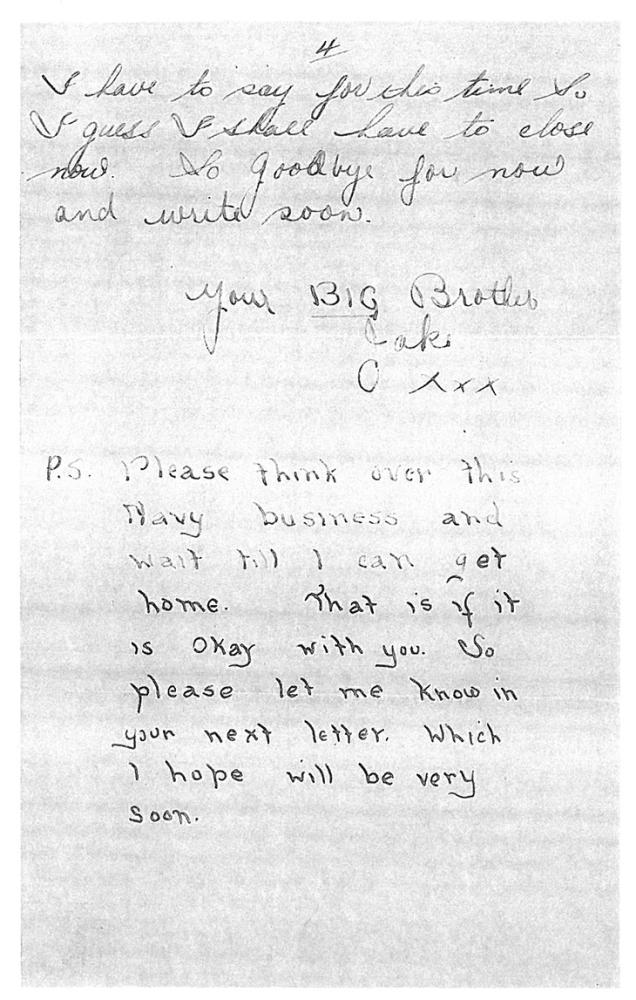 4
I have to say for this time So
I guess I shall have to close
now. So Goodbye for now
and write soon.
Your BIG Brother
Jake
O xxx
P.S. Please think over this
Navy business and
wait till I can get
home. That is if it
is Okay with you. So
please let me know in
your next letter. Which
I hope will be very
soon.